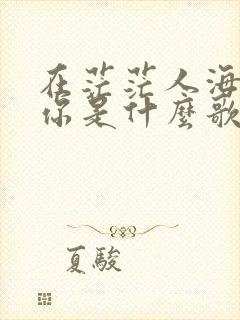 在茫茫人海
你是什麼歌
夏駿